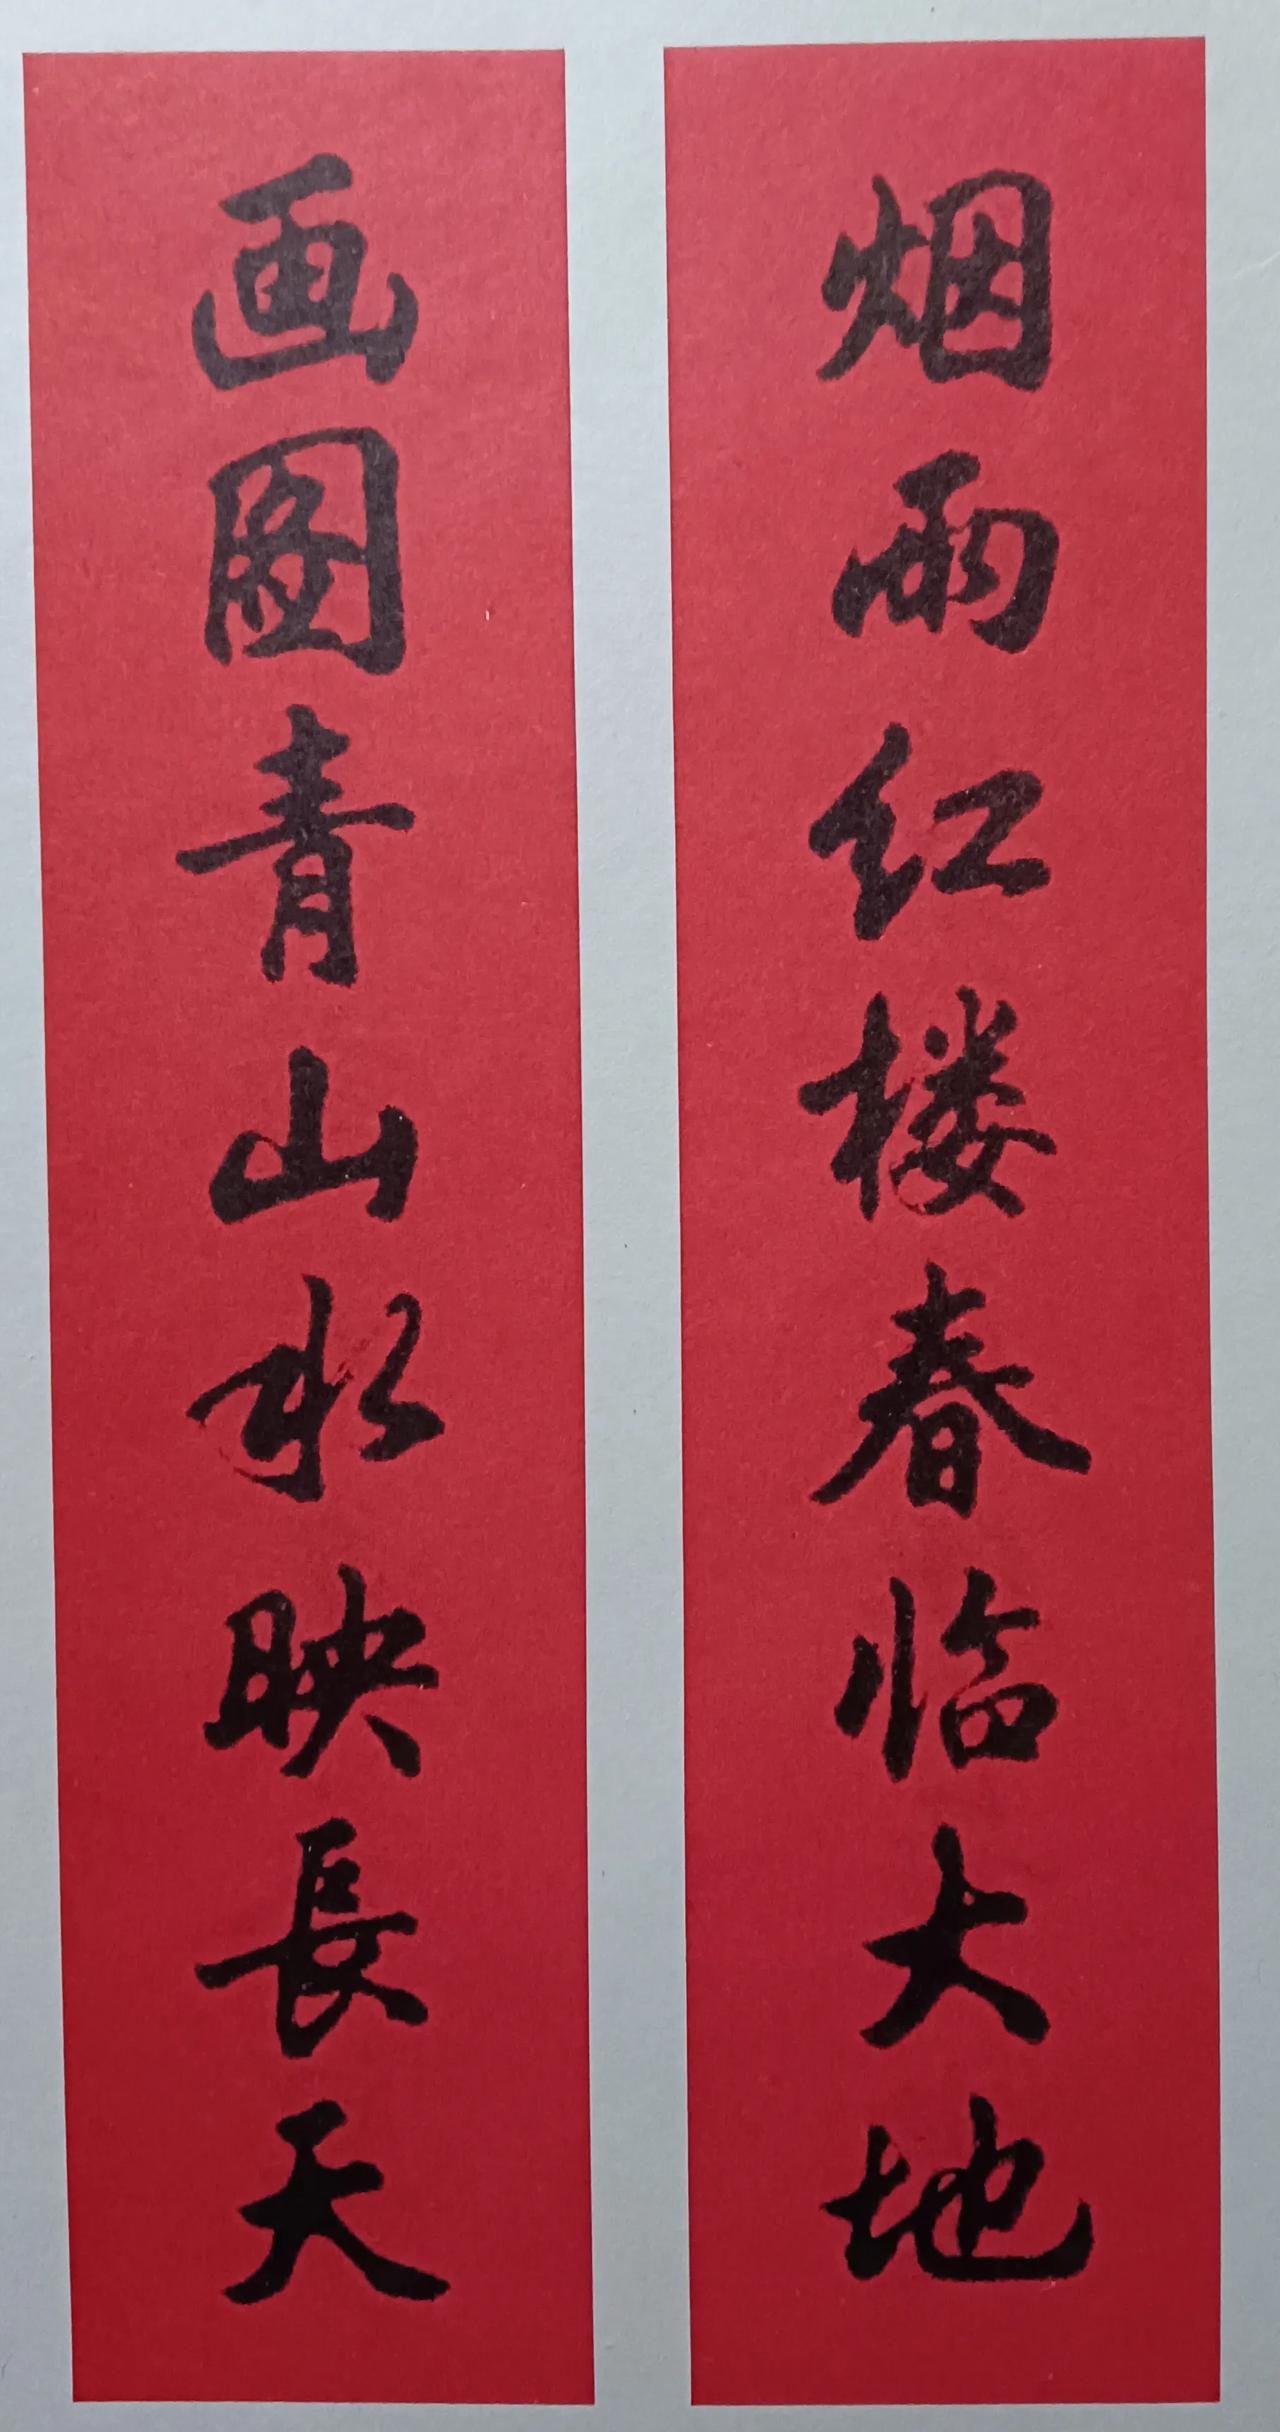 烟雨红楼春临大地
画图青山水映長天